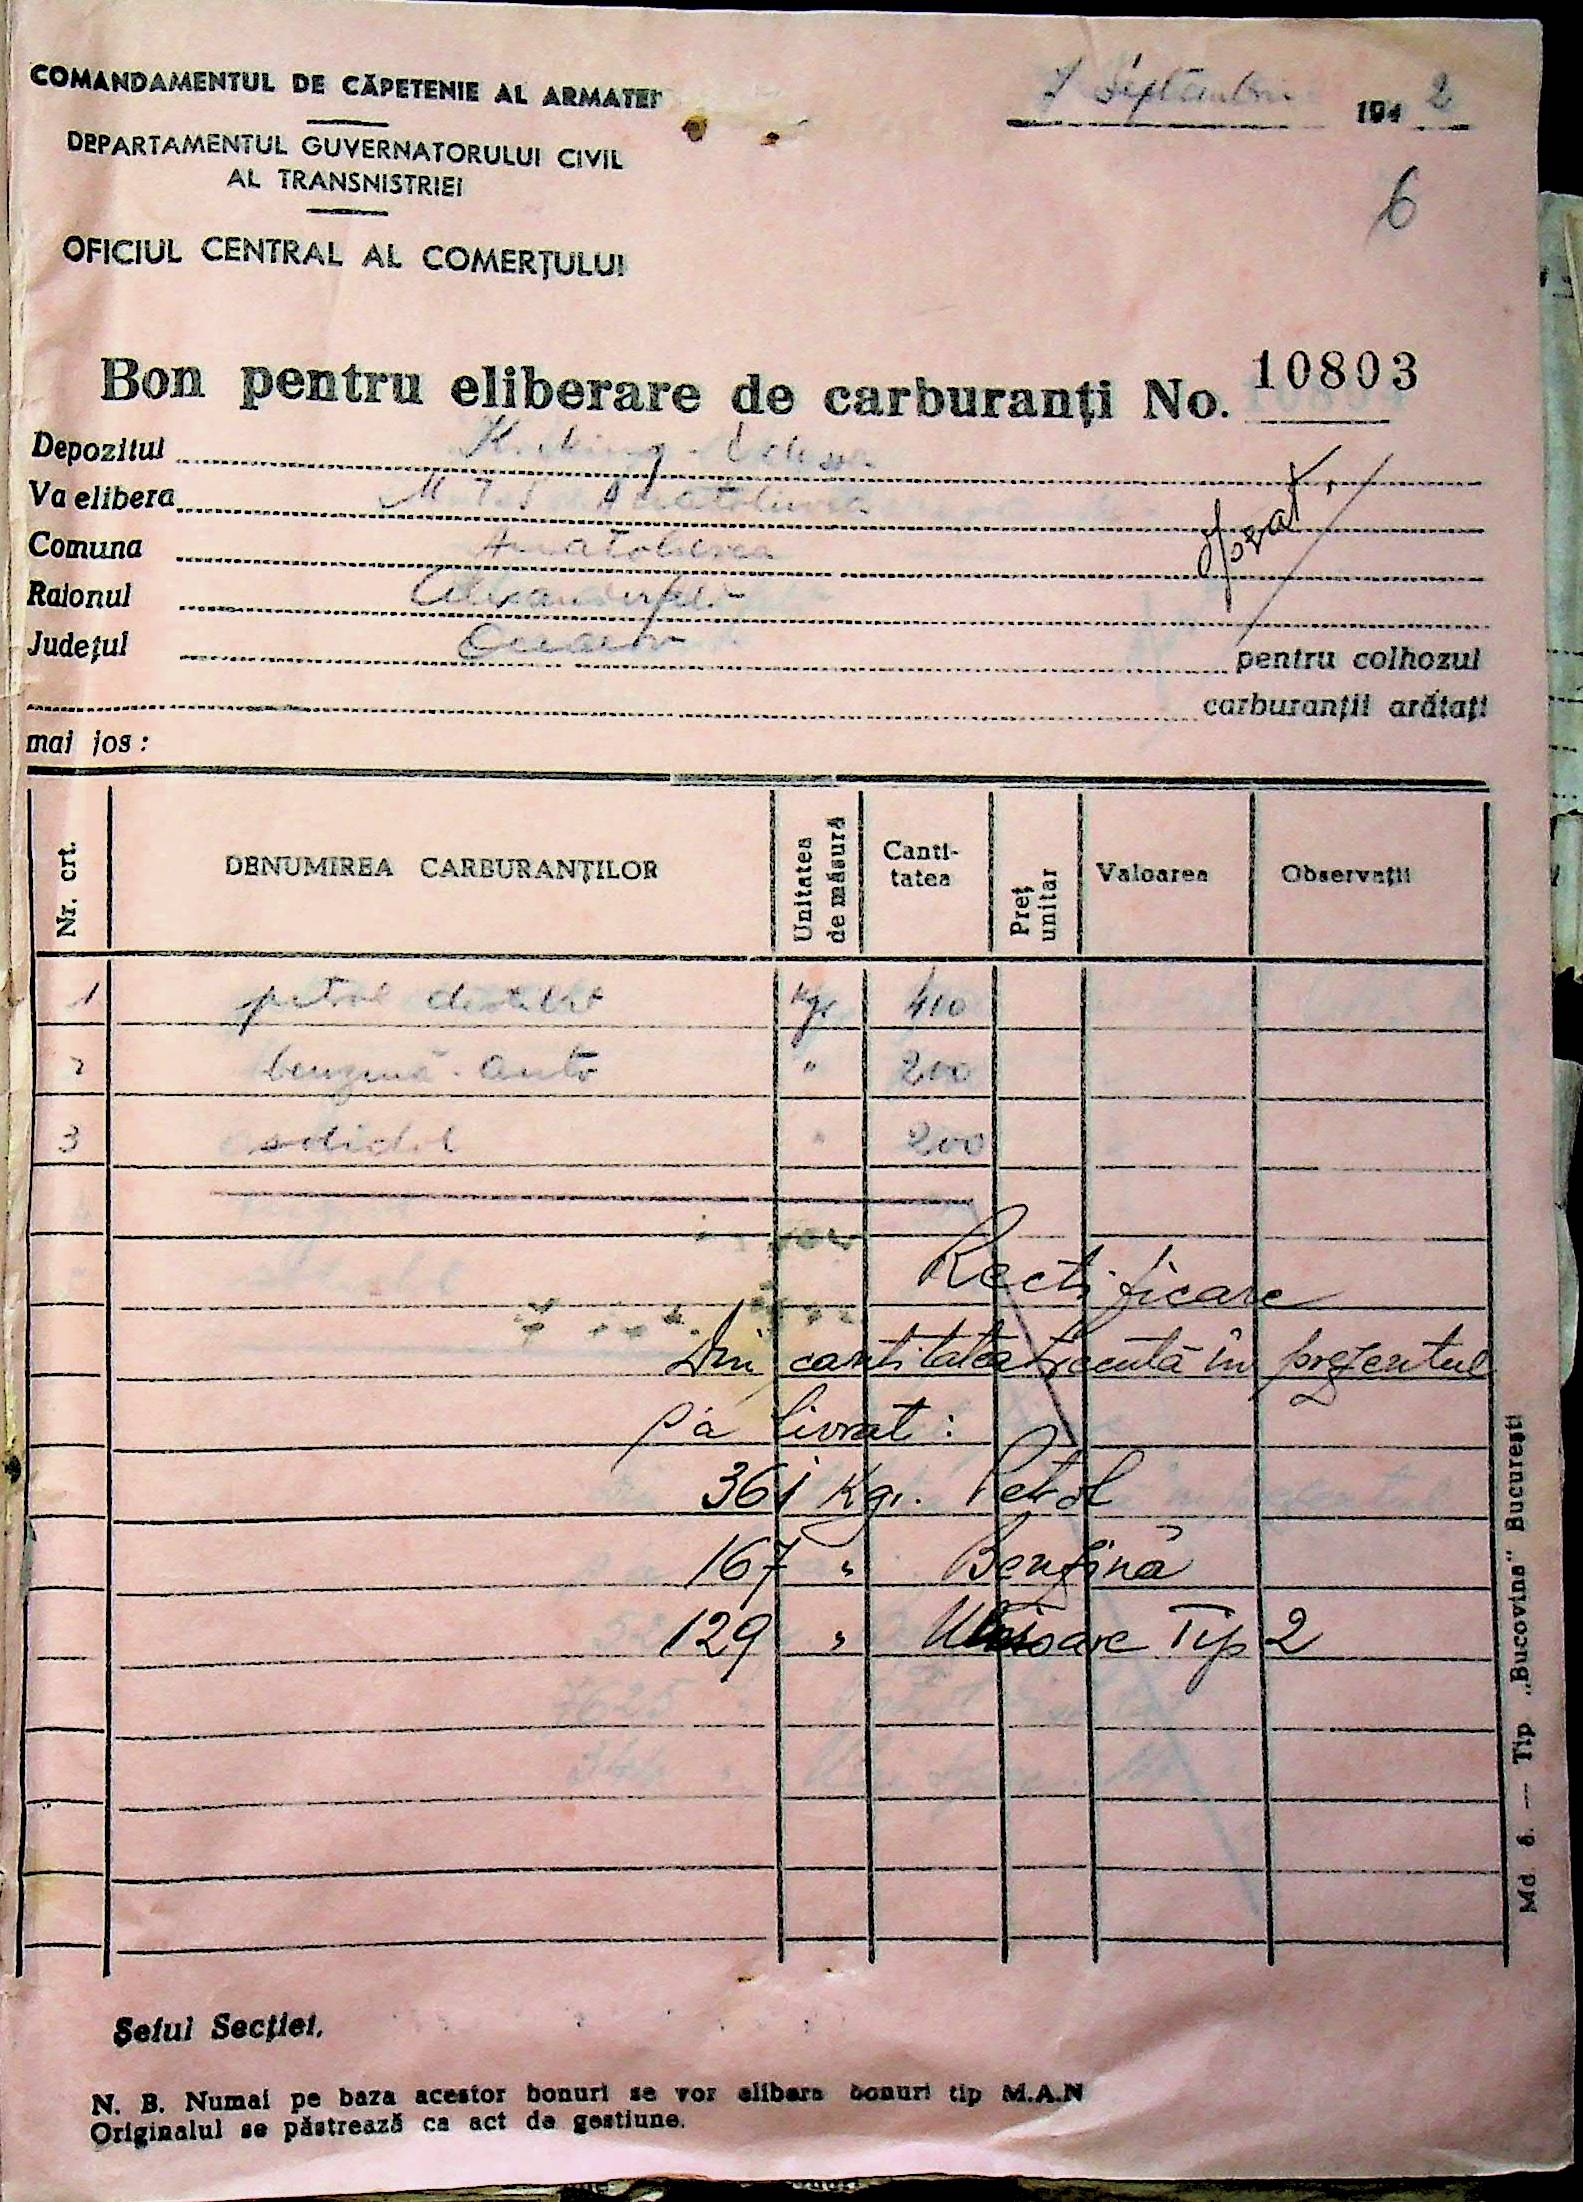 COMANDAMENTUL DE CĂPETENIE AL ARMATEI
7 Septembrie 1942
DEPARTAMENTUL GUVERNATORULUI CIVIL
AL TRANSNISTRIEI
6
OFICIUL CENTRAL AL COMERȚULUI
Bon pentru eliberare de carburanți No. 10803
Depozitul
Va elibera M T S Anatolievca
Comuna Anatolievca
Raionul Alexanderfeld
Județul Oceacov pentru colhozul
carburanții arătați
mai jos:
Nr. crt. DENUMIREA CARBURANȚILOR Unitatea de măsură Canti-tatea Preț unitar Valoarea Observații
1 petrol distilat kgr 410
2 benzină auto " 200
3 solidol " 200
Rectificare
Din cantitatea trecută în prezentul
s'a livrat:
361 Kgr. Petrol
167 " Benzină
129 " Unsoare Tip 2
Md. 6. — Tip. „Bucovina" București
Șeful Secției,
N. B. Numai pe baza acestor bonuri se vor elibera bonuri tip M.A.N
Originalul se păstrează ca act de gestiune.